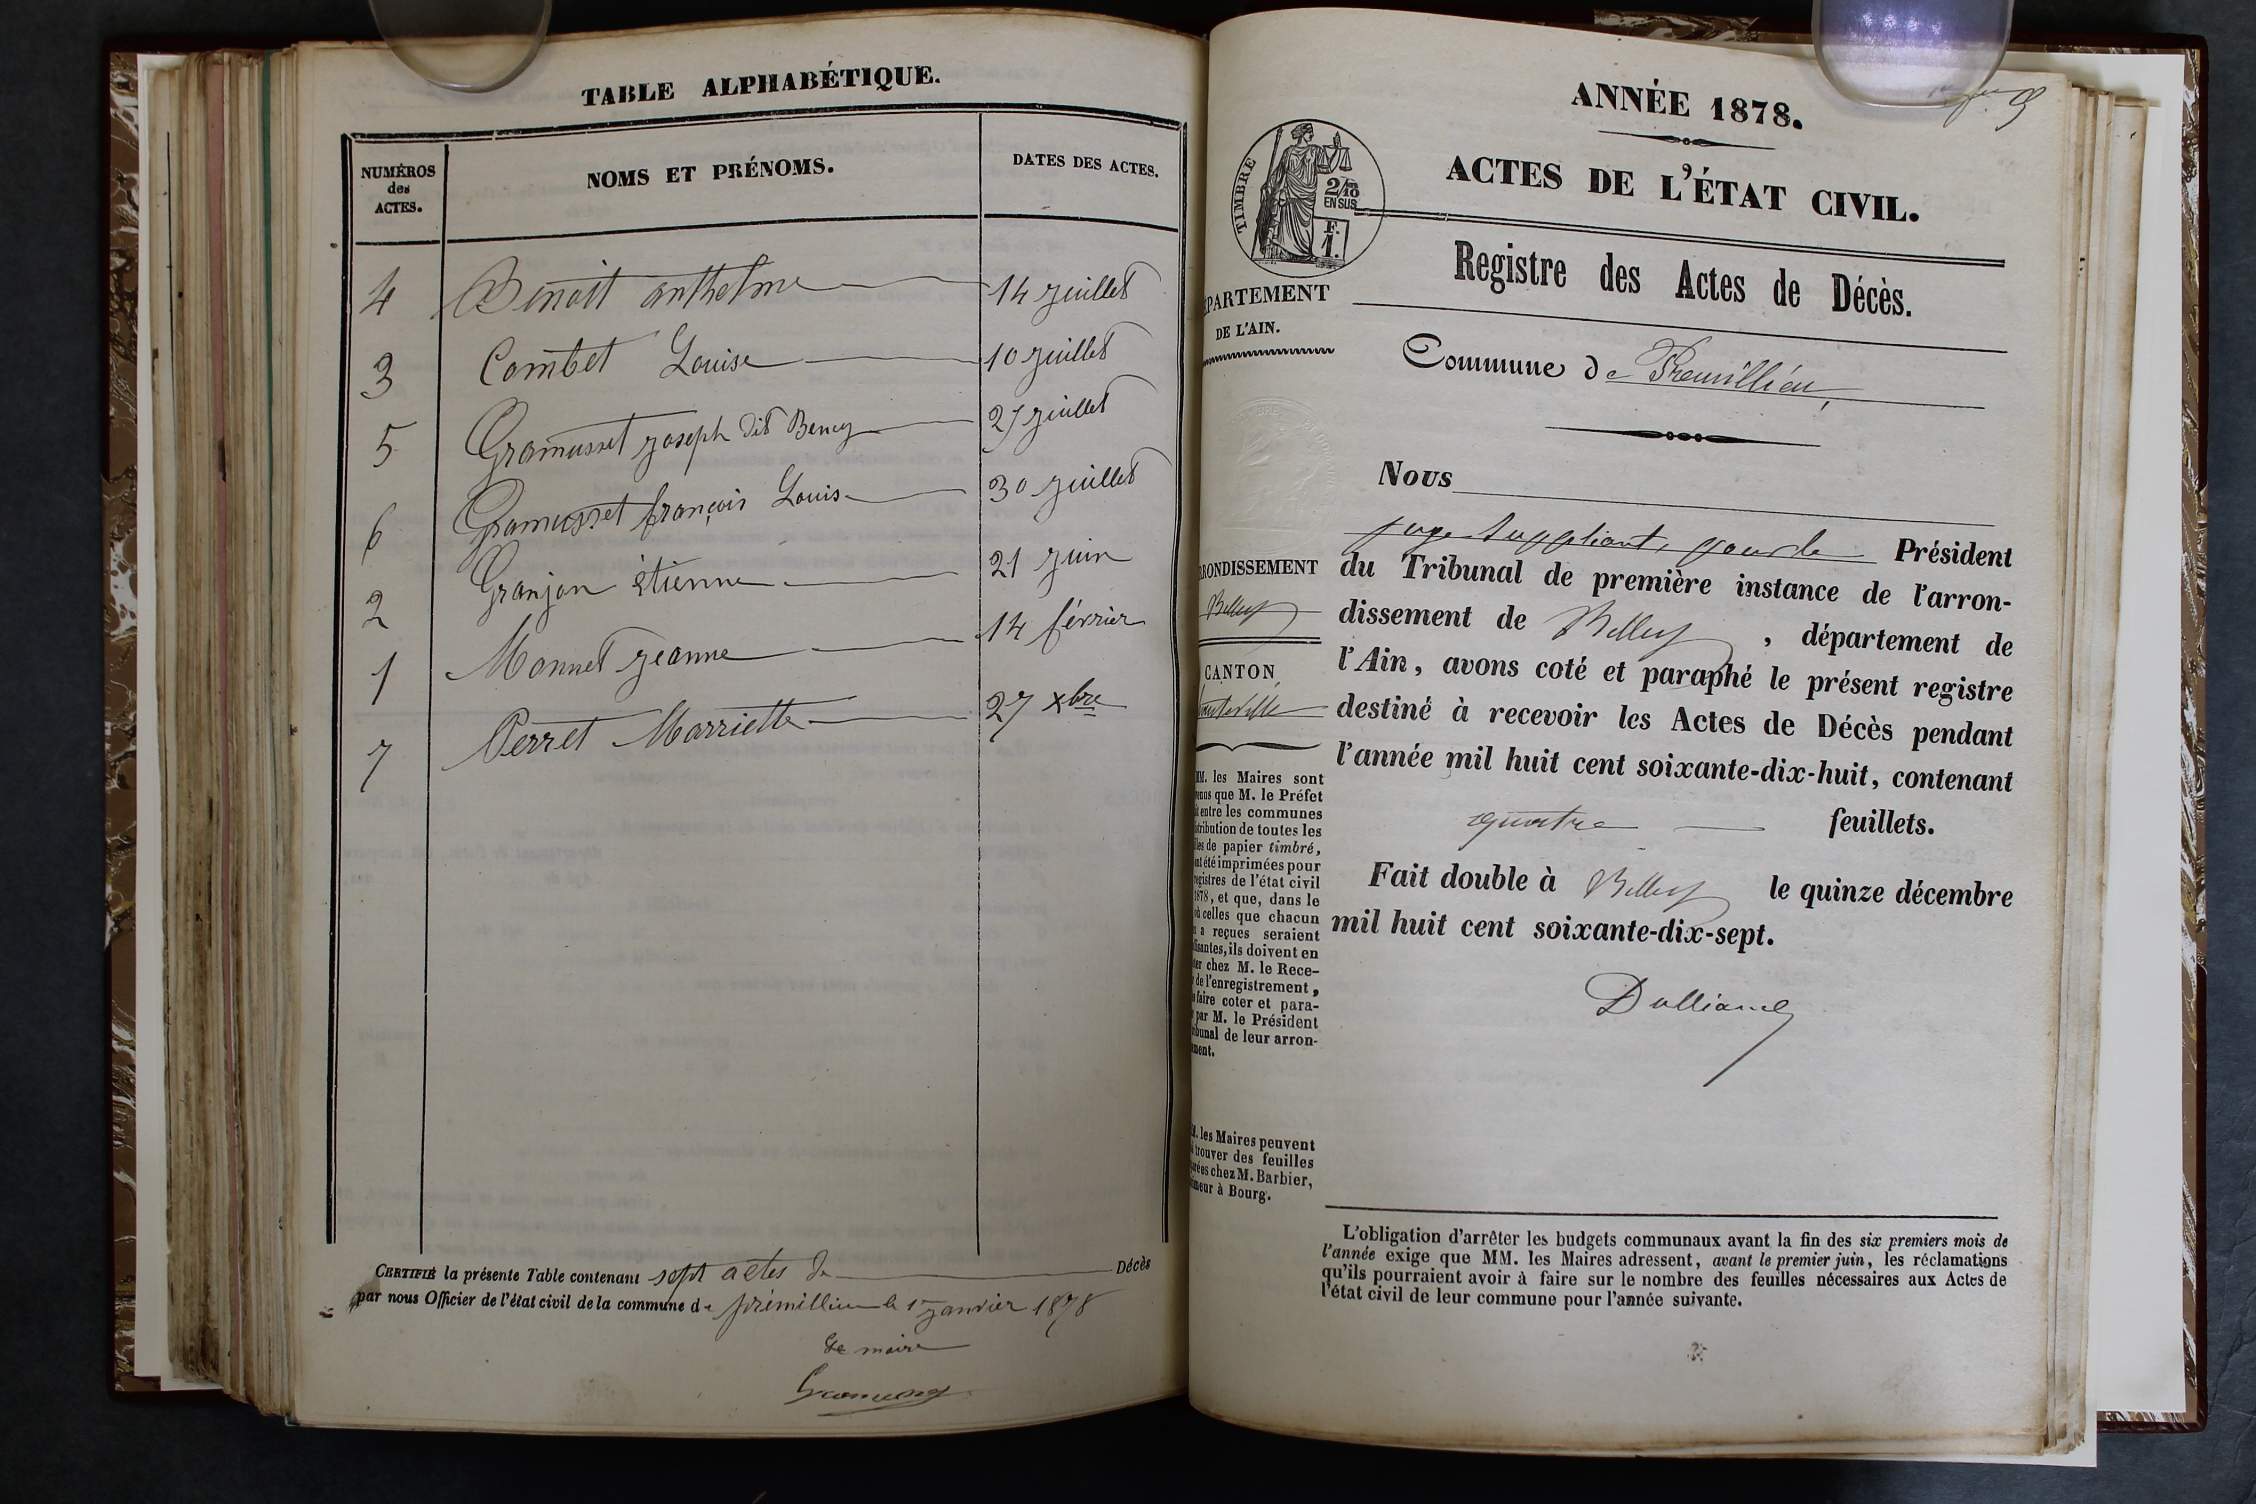 TABLE ALPHABÉTIQUE.
NUMÉROS
des
ACTES.
NOMS ET PRÉNOMS.
DATES DES ACTES.
4 Benoit anthelme 14 juillet
3 Combet Louise 10 juillet
5 Gramusset joseph dit Bency 27 juillet
6 Gramusset françois Louis 30 juillet
2 Granjon étienne 21 juin
1 Monnet jeanne 14 février
7 Perret Marriette 27 xbre
CERTIFIÉ la présente Table contenant sept actes de Décès
par nous Officier de l'état civil de la commune de prémillieu le 1er janvier 1878
Le maire
ANNÉE 1878.
ACTES DE L'ÉTAT CIVIL.
TIMBRE
2/10
EN SUS
F.
1.
Registre des Actes de Décès.
PARTEMENT
DE L'AIN.
Commune de Premillieu,
NOUS
juge suppléant, pour le Président
du Tribunal de première instance de l'arron-
dissement de Belley, département de
l'Ain, avons coté et paraphé le présent registre
destiné à recevoir les Actes de Décès pendant
l'année mil huit cent soixante-dix-huit, contenant
quatre feuillets.
Fait double à Belley le quinze décembre
mil huit cent soixante-dix-sept.
RONDISSEMENT
Belley
CANTON
auteville
MM. les Maires sont
enus que M. le Préfet
it entre les communes
tribution de toutes les
lles de papier timbré,
nt été imprimées pour
egistres de l'état civil
1878, et que, dans le
où celles que chacun
n a reçues seraient
fisantes, ils doivent en
ter chez M. le Rece-
r de l'enregistrement,
s faire coter et para-
r par M. le Président
ibunal de leur arron-
ment.
M. les Maires peuvent
i trouver des feuilles
arées chez M. Barbier,
rimeur à Bourg.
L'obligation d'arrêter les budgets communaux avant la fin des six premiers mois de
l'année exige que MM. les Maires adressent, avant le premier juin, les réclamations
qu'ils pourraient avoir à faire sur le nombre des feuilles nécessaires aux Actes de
l'état civil de leur commune pour l'année suivante.